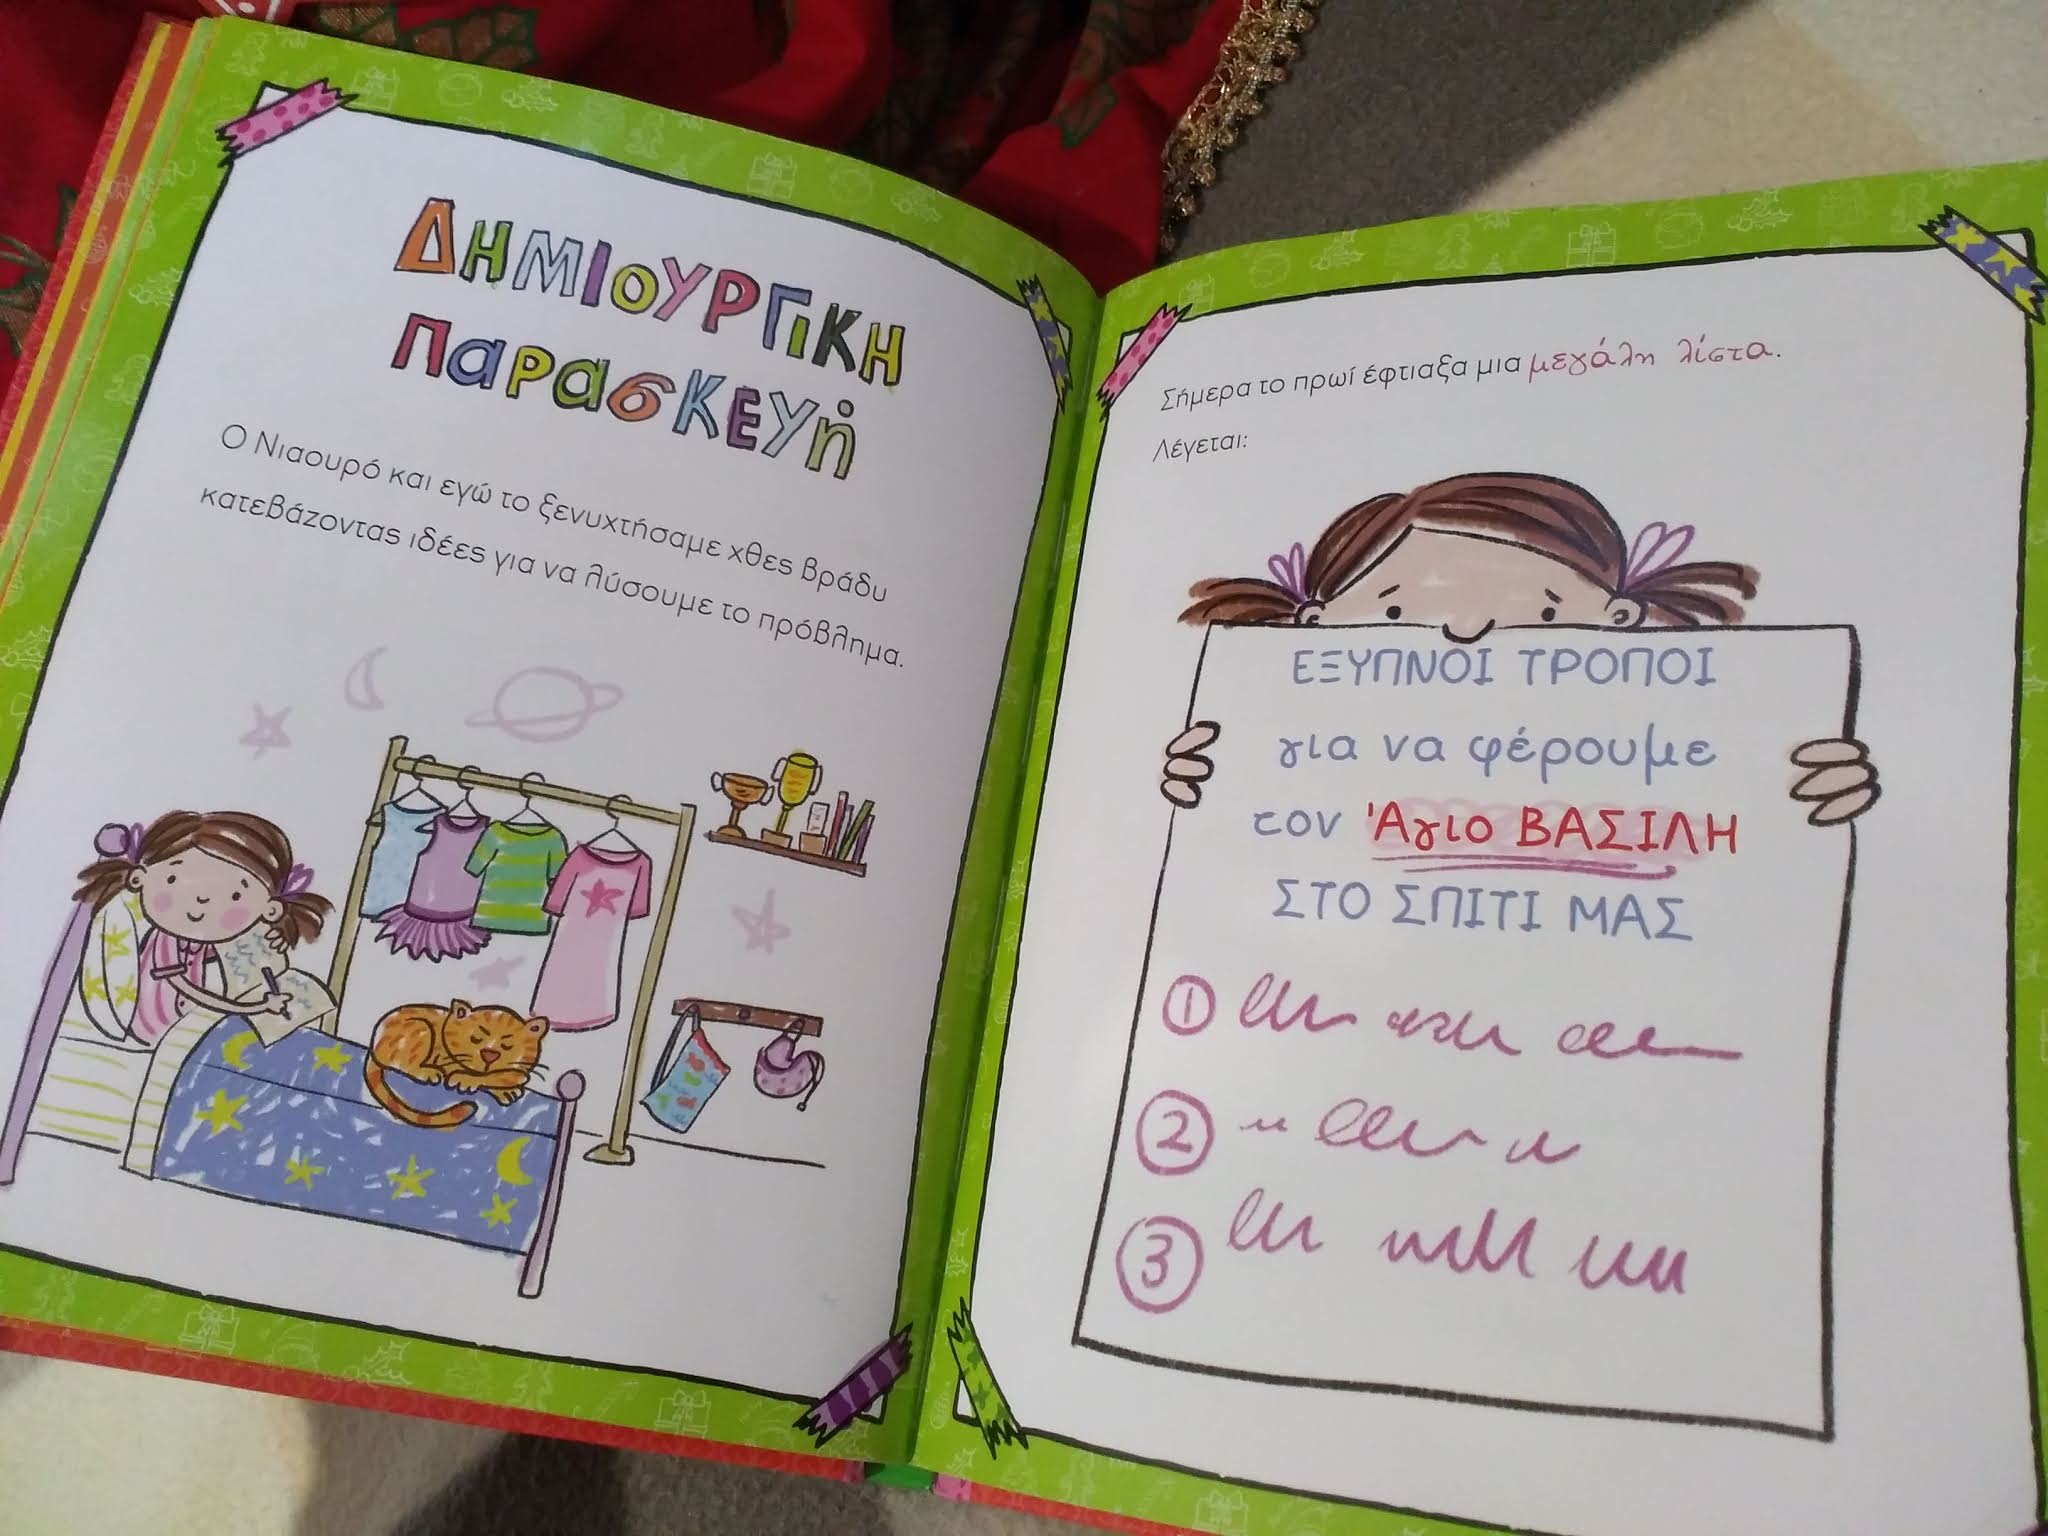 Δημιουργική
Παρασκευή
Ο Νιαουρό και εγώ το ξενυχτήσαμε χθες βράδυ
κατεβάζοντας ιδέες για να λύσουμε το πρόβλημα.
Σήμερα το πρωί έφτιαξα μια μεγάλη λίστα.
Λέγεται:
ΕΞΥΠΝΟΙ ΤΡΟΠΟΙ
για να φέρουμε
τον Άγιο ΒΑΣΙΛΗ
ΣΤΟ ΣΠΙΤΙ ΜΑΣ
1
2
3